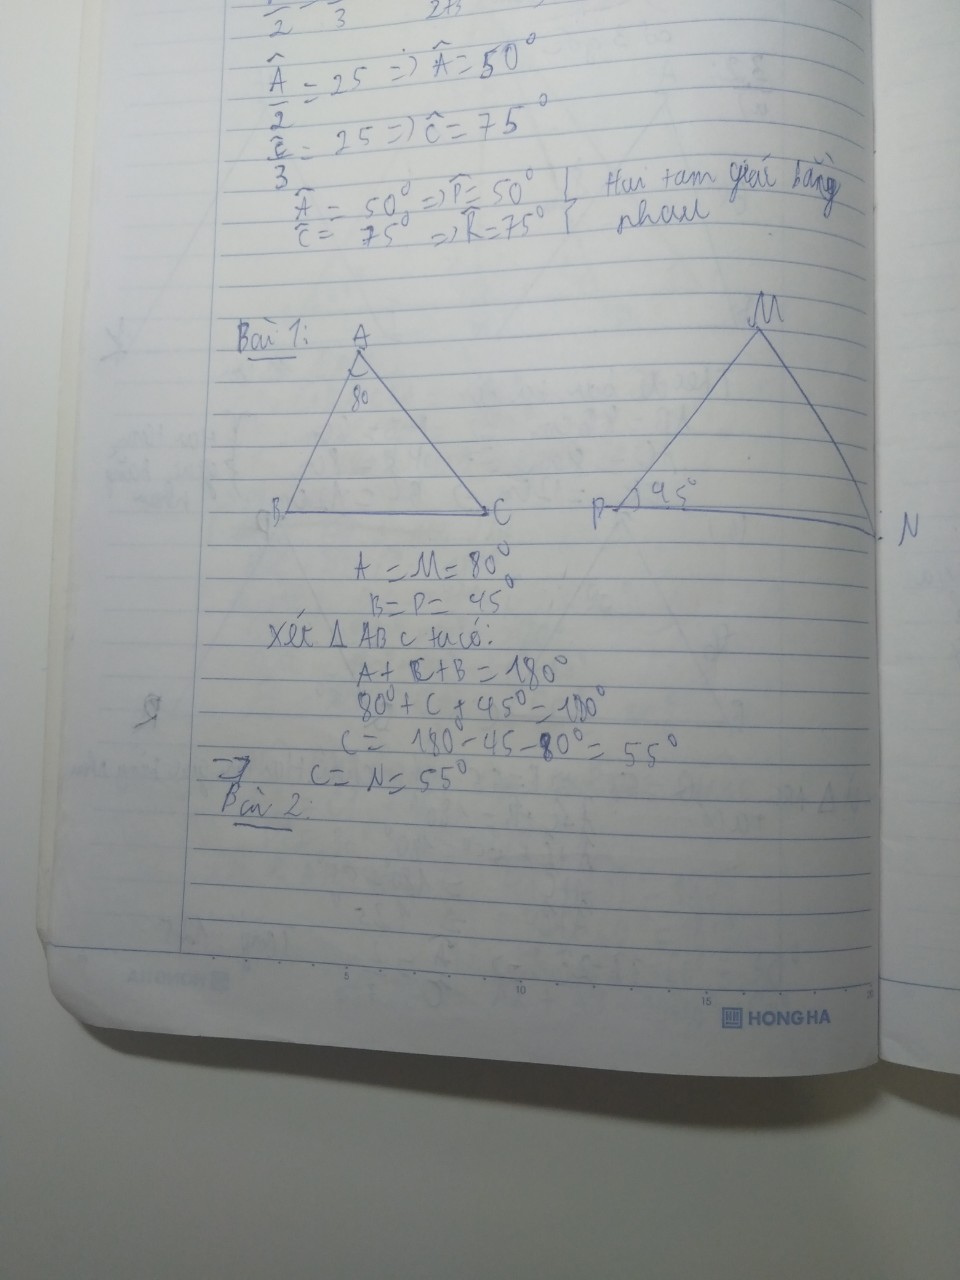 2 3 2+3
Â/2 = 25 => Â = 50°
Ĉ/3 = 25 => Ĉ = 75°
Â = 50° => P̂ = 50° } Hai tam giác bằng
Ĉ = 75° => R̂ = 75° } nhau
Bài 1:
A
M
80
B
C
P
45°
N
A = M = 80°
B = P = 45°
Xét Δ ABC ta có:
A + C + B = 180°
80° + C + 45° = 180°
C = 180° - 45 - 80° = 55°
=> C = N = 55°
Bài 2:
5 10 15 20
HONG HA